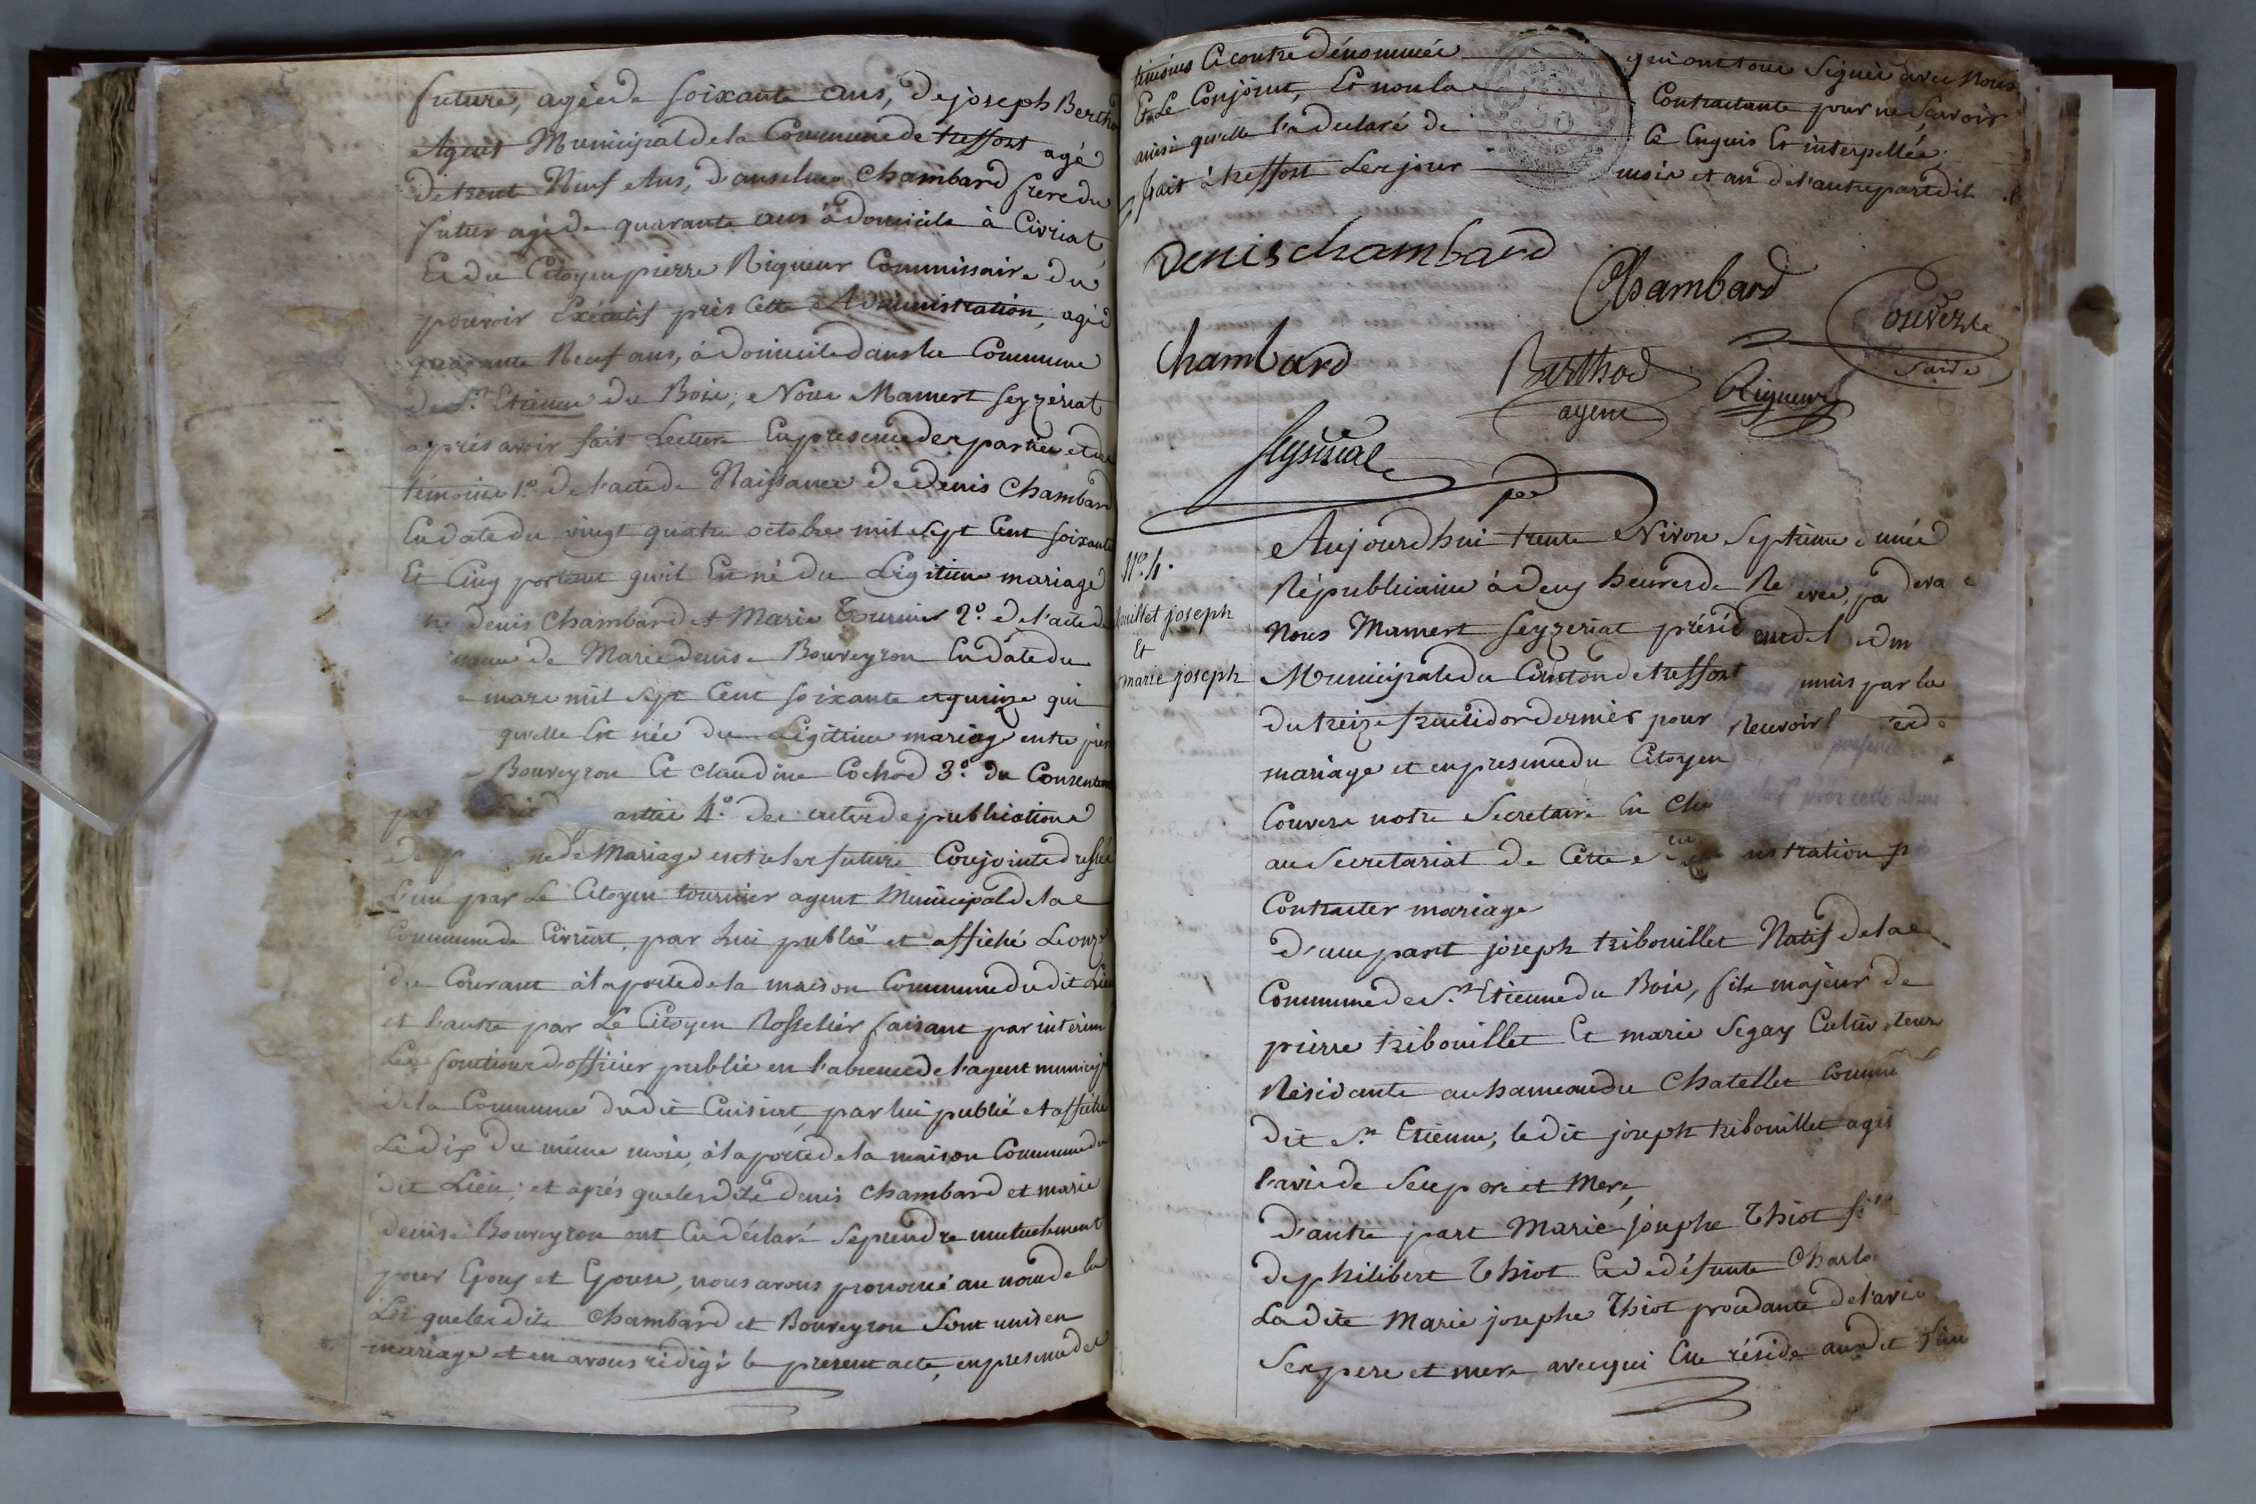 future, agée de soixante ans, de joseph Berthod
Agent Municipal de la Commune de treffort agé
de trent Neuf Ans, d'anselme Chambard frere du
futur agé de quarante ans à domicile à Civriat
Et du Citoyen pierre Riqueur Commissaire du
pouvoir Exécutif près Cette Administration, agé
quarante Neuf ans, à domicile dans la Commune
de St. Etienne du Bois; Nous Mamert seyzériat
après avoir fait Lecture En presence des parties et de
témoins 1.° de l'acte de Naissance de denis Chambard
En date du vingt quatre octobre mil sept Cent soixante
Et Cinq portant qu'il Est né du Légitime mariage
denis Chambard et Marie tournier 2.° de l'acte de
de Marie denise Bouveyron En date du
mars mil sept Cent soixante et quinze qui
qu'elle Est née du Légitime mariage entre
Bouveyron Et Claudine Cochod 3.° du Consentem
par 4.° des actes de publications
de mariage entre les futurs Conjoints dressé
L'un par Le Citoyen tournier agent Municipal de la
Commune de Civriat, par lui publié et affiché Le onze
du Courant à la porte de la maison Commune du dit Lieu
et l'autre par Le Citoyen Rosselier faisant par interim
Les fonctions d'officier public en l'absence de l'agent municip
de la Commune du dit Cuisiat, par lui publié et affiché
Le dix du même mois, à la porte de la maison Commune du
dit Lieu; et après que lesdits denis Chambard et marie
denise Bouveyron ont Eu déclaré se prendre mutuelement
pour Epoux et Epouse, nous avons prononcé au nom de la
Loi que lesdits Chambard et Bouveyron Sont unis en
mariage et en avons rédigé le present acte, en presence des
témoins Ci contre dénommés qui ont tous Signé avec Nous
Et Le Conjoint, Et non la Contractante pour ne Scavoir
ainsi qu'elle l'a declaré de Ce Enquis Et interpellée,
fait à treffort Les jour mois et an de l'autre part dit
denis chambard
Chambard
Couverse
Sacre
chambard
Berthod
agent
Riqueur
Seyzeriat
pdt
N.° 4.
Aujourdhui trente Nivose septieme année
Républicaine à deux heures de Re
Nous Mamert seyzeriat présid
Municipale du Canton de treffort par la
du treize fructidor dernier pour Recevoir
mariage et en presence du Citoyen
Couverse notre Secretaire En Chef
au Secretariat de Cette nistration
Contracter mariage
ouillet joseph
Et
marie joseph
d'une part joseph tribouillet Natif de la
Commune de St. Etienne du Bois, fils majeur de
pierre tribouillet Et marie Segay Cultivateurs
Résidants au hameau du Chatellet Commune
dit St. Etienne, le dit joseph tribouillet agis
l'avis de Ses pere et Mere,
d'autre part Marie josephe Thiot
de philibert Thiot Et de défunte Charlo
La dite Marie josephe Thiot procédante de l'avis
Ses pere et mere avec qui Elle réside au dit Lieu